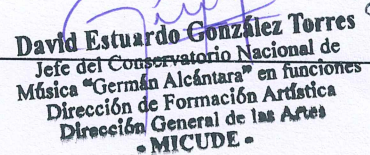 David Estuardo González Torres
Jefe del Conservatorio Nacional de
Música "Germán Alcántara" en funciones
Dirección de Formación Artística
Dirección General de las Artes
- MICUDE -